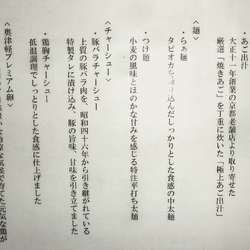 ・あご出汁
大正十一年創業の京都老舗店より取り寄せた
厳選「焼きあご」を丁重に炊いた「極上あご出汁」
〈麺〉
・らぁ麺
タピオカを練り込んだしっかりとした食感の中太麺
・つけ麺
小麦の風味とほのかな甘みを感じる特注平打ち太麺
〈チャーシュー〉
・豚バラチャーシュー
上質の豚バラ肉を、昭和四十六年から引き継がれている
特製タレに漬け込み、豚の旨味、甘味を引き立てました
・鶏胸チャーシュー
低温調理でしっとりとした食感に仕上げました
〈奥津軽プレミアム卵〉
育てた元気な鶏が